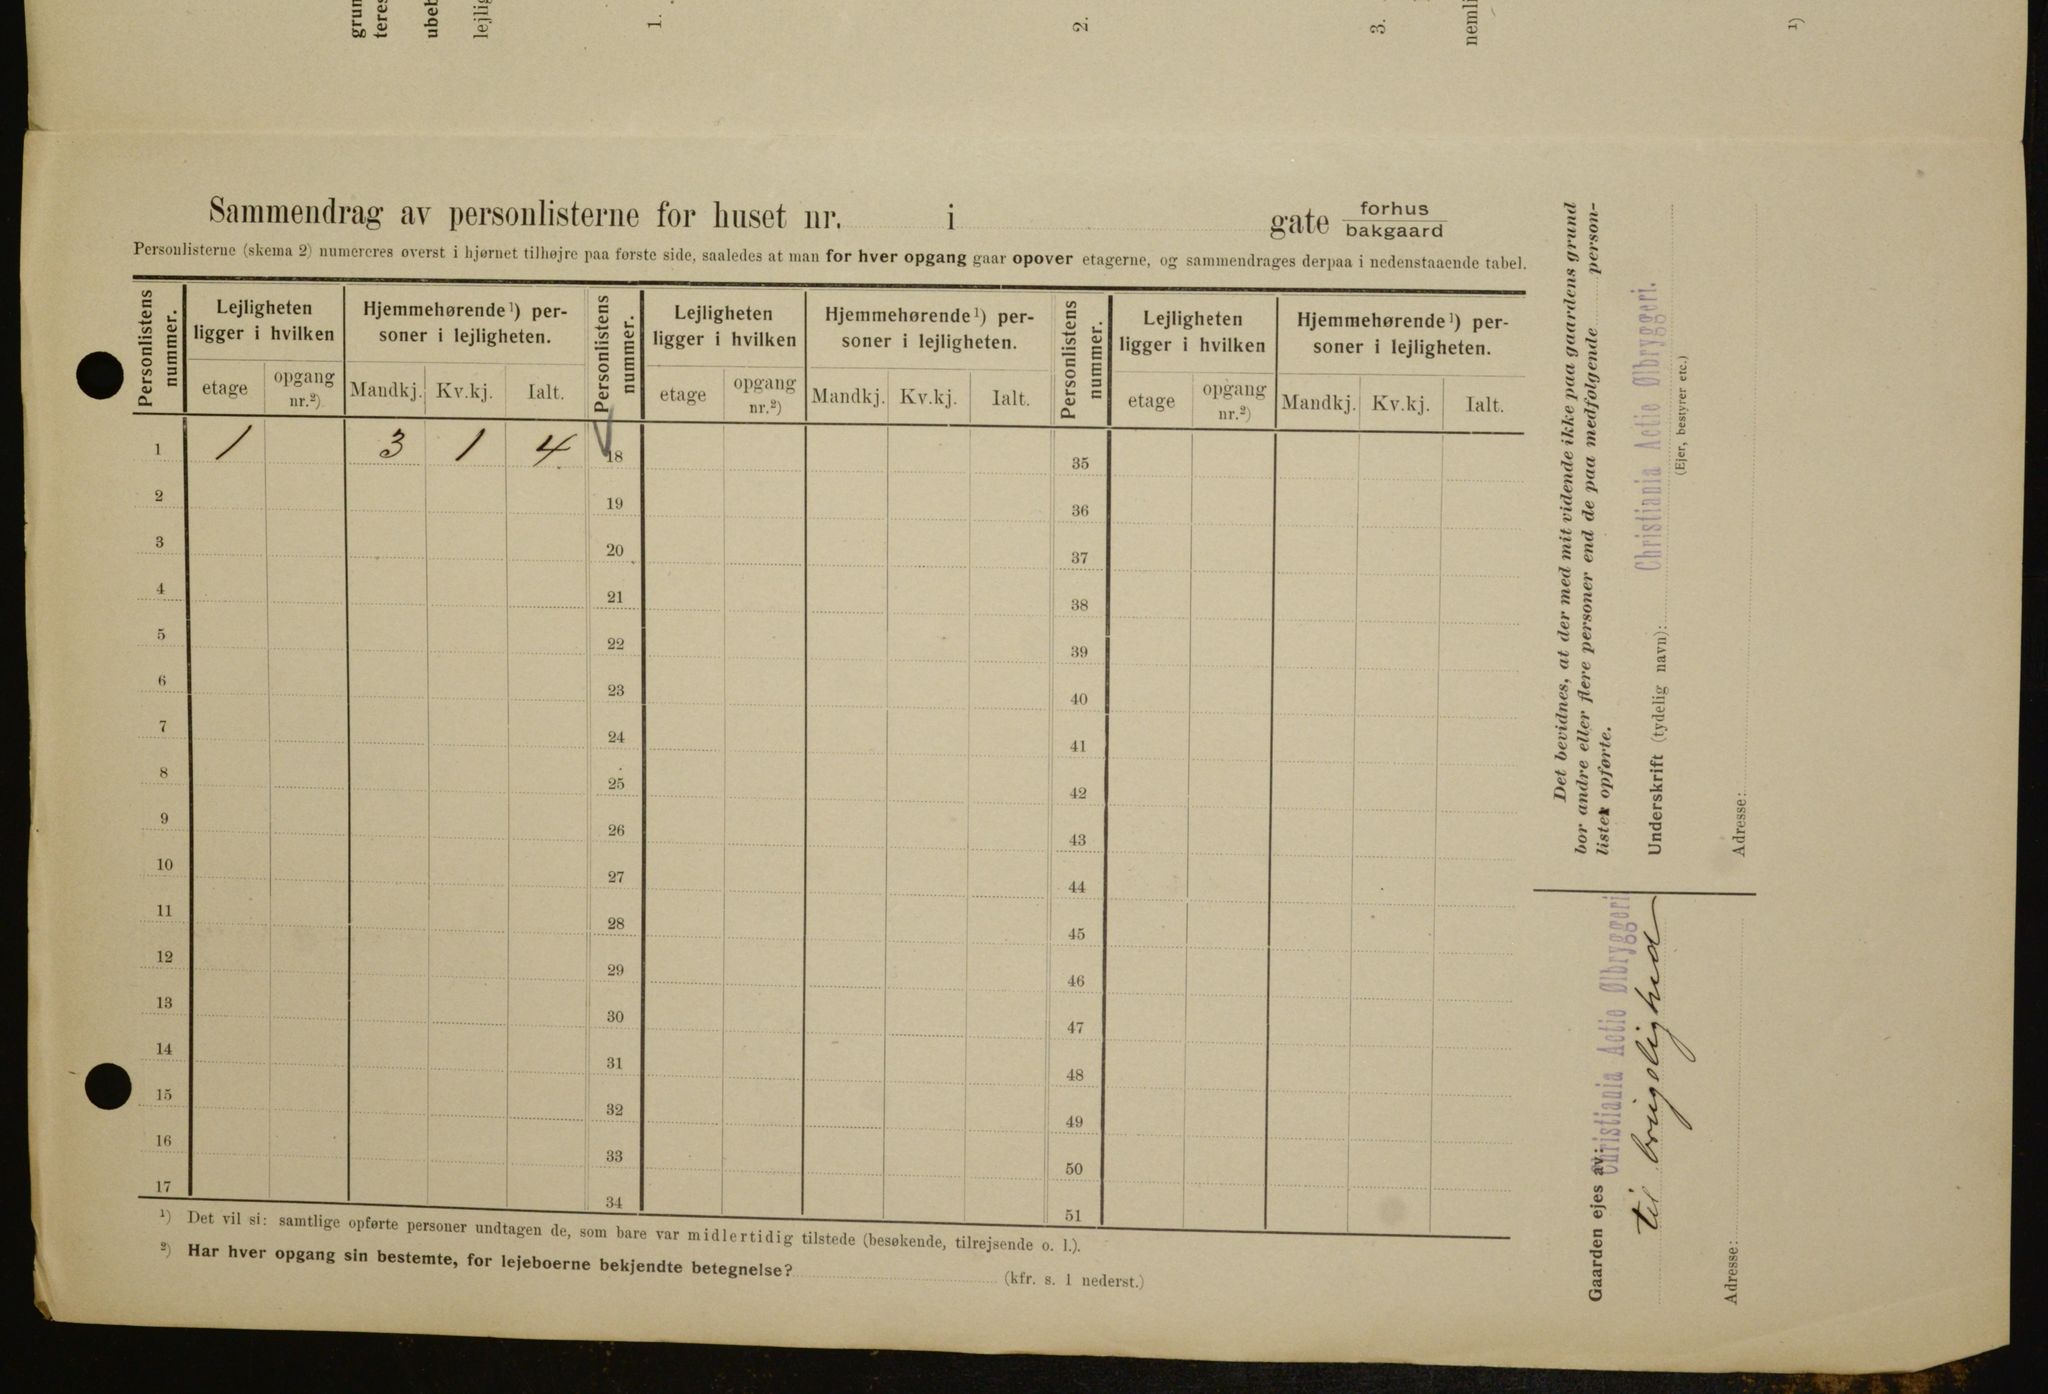 grun
teres
ubeb
lejlig
1.
2.
3.
nemli
1)
Sammendrag av personlisterne for huset nr. i gate forhus
bakgaard
Personlisterne (skema 2) numereres øverst i hjørnet tilhøjre paa første side, saaledes at man for hver opgang gaar opover etagerne, og sammendrages derpaa i nedenstaaende tabel.
Personlistens nummer. Lejligheten ligger i hvilken Hjemmehørende 1) personer i lejligheten. Personlistens nummer. Lejligheten ligger i hvilken Hjemmehørende 1) personer i lejligheten. Personlistens nummer. Lejligheten ligger i hvilken Hjemmehørende 1) personer i lejligheten.
etage opgang nr.2) Mandkj. Kv.kj. Ialt. etage opgang nr.2) Mandkj. Kv.kj. Ialt. etage opgang nr.2) Mandkj. Kv.kj. Ialt.
1 1 3 1 4 18 35
2 19 36
3 20 37
4 21 38
5 22 39
6 23 40
7 24 41
8 25 42
9 26 43
10 27 44
11 28 45
12 29 46
13 30 47
14 31 48
15 32 49
16 33 50
17 34 51
1) Det vil si: samtlige opførte personer undtagen de, som bare var midlertidig tilstede (besøkende, tilrejsende o. l.).
2) Har hver opgang sin bestemte, for lejeboerne bekjendte betegnelse? (kfr. s. 1 nederst.)
Det bevidnes, at der med mit vidende ikke paa gaardens grund
bor andre eller flere personer end de paa medfølgende person-
lister opførte.
Underskrift (tydelig navn): Christiania Actie Ølbryggeri.
(Ejer, bestyrer etc.)
Adresse:
Gaarden ejes av: Christiania Actie Ølbryggeri
til
Adresse: